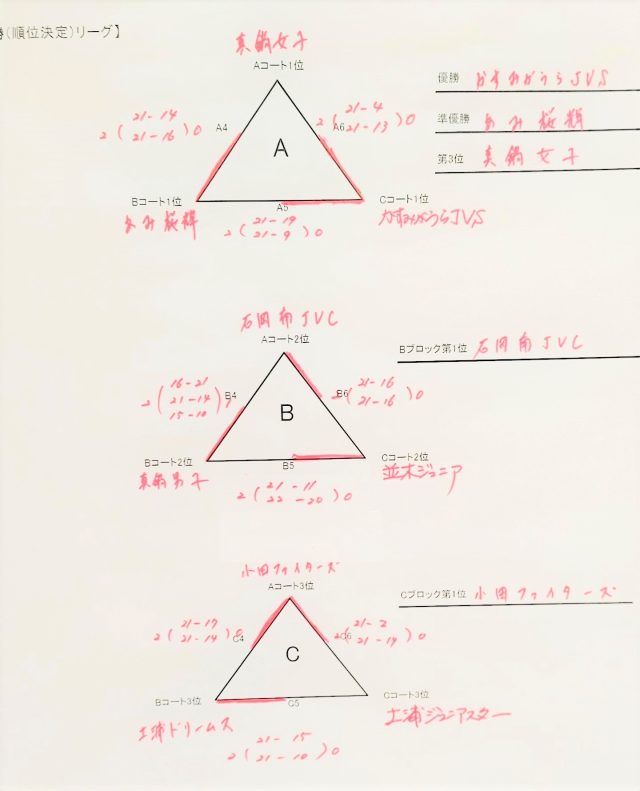 勝(順位決定)リーグ】
真鍋女子
Aコート1位
優勝 かすみがうらJVS
21-14 A4 A6 21-4
2( 21-16 )0 2( 21-13 )0
準優勝 あみ桜輝
A
第3位 真鍋女子
Bコート1位 A5 Cコート1位
あみ桜輝 かすみがうらJVS
21-19
2( 21-9 )0
石岡南JVC
Aコート2位
Bブロック第1位 石岡南JVC
16-21
2( 21-14 )1 B4 B6 21-16
15-10 2( 21-16 )0
B
Bコート2位 B5 Cコート2位
真鍋男子 並木ジュニア
21-11
2( 22-20 )0
小田ファイターズ
Aコート3位
Cブロック第1位 小田ファイターズ
21-17 21-2
2( 21-14 )0 C4 C6 2( 21-19 )0
C
Bコート3位 C5 Cコート3位
土浦ドリームス 土浦ジュニアスター
21-15
2( 21-10 )0